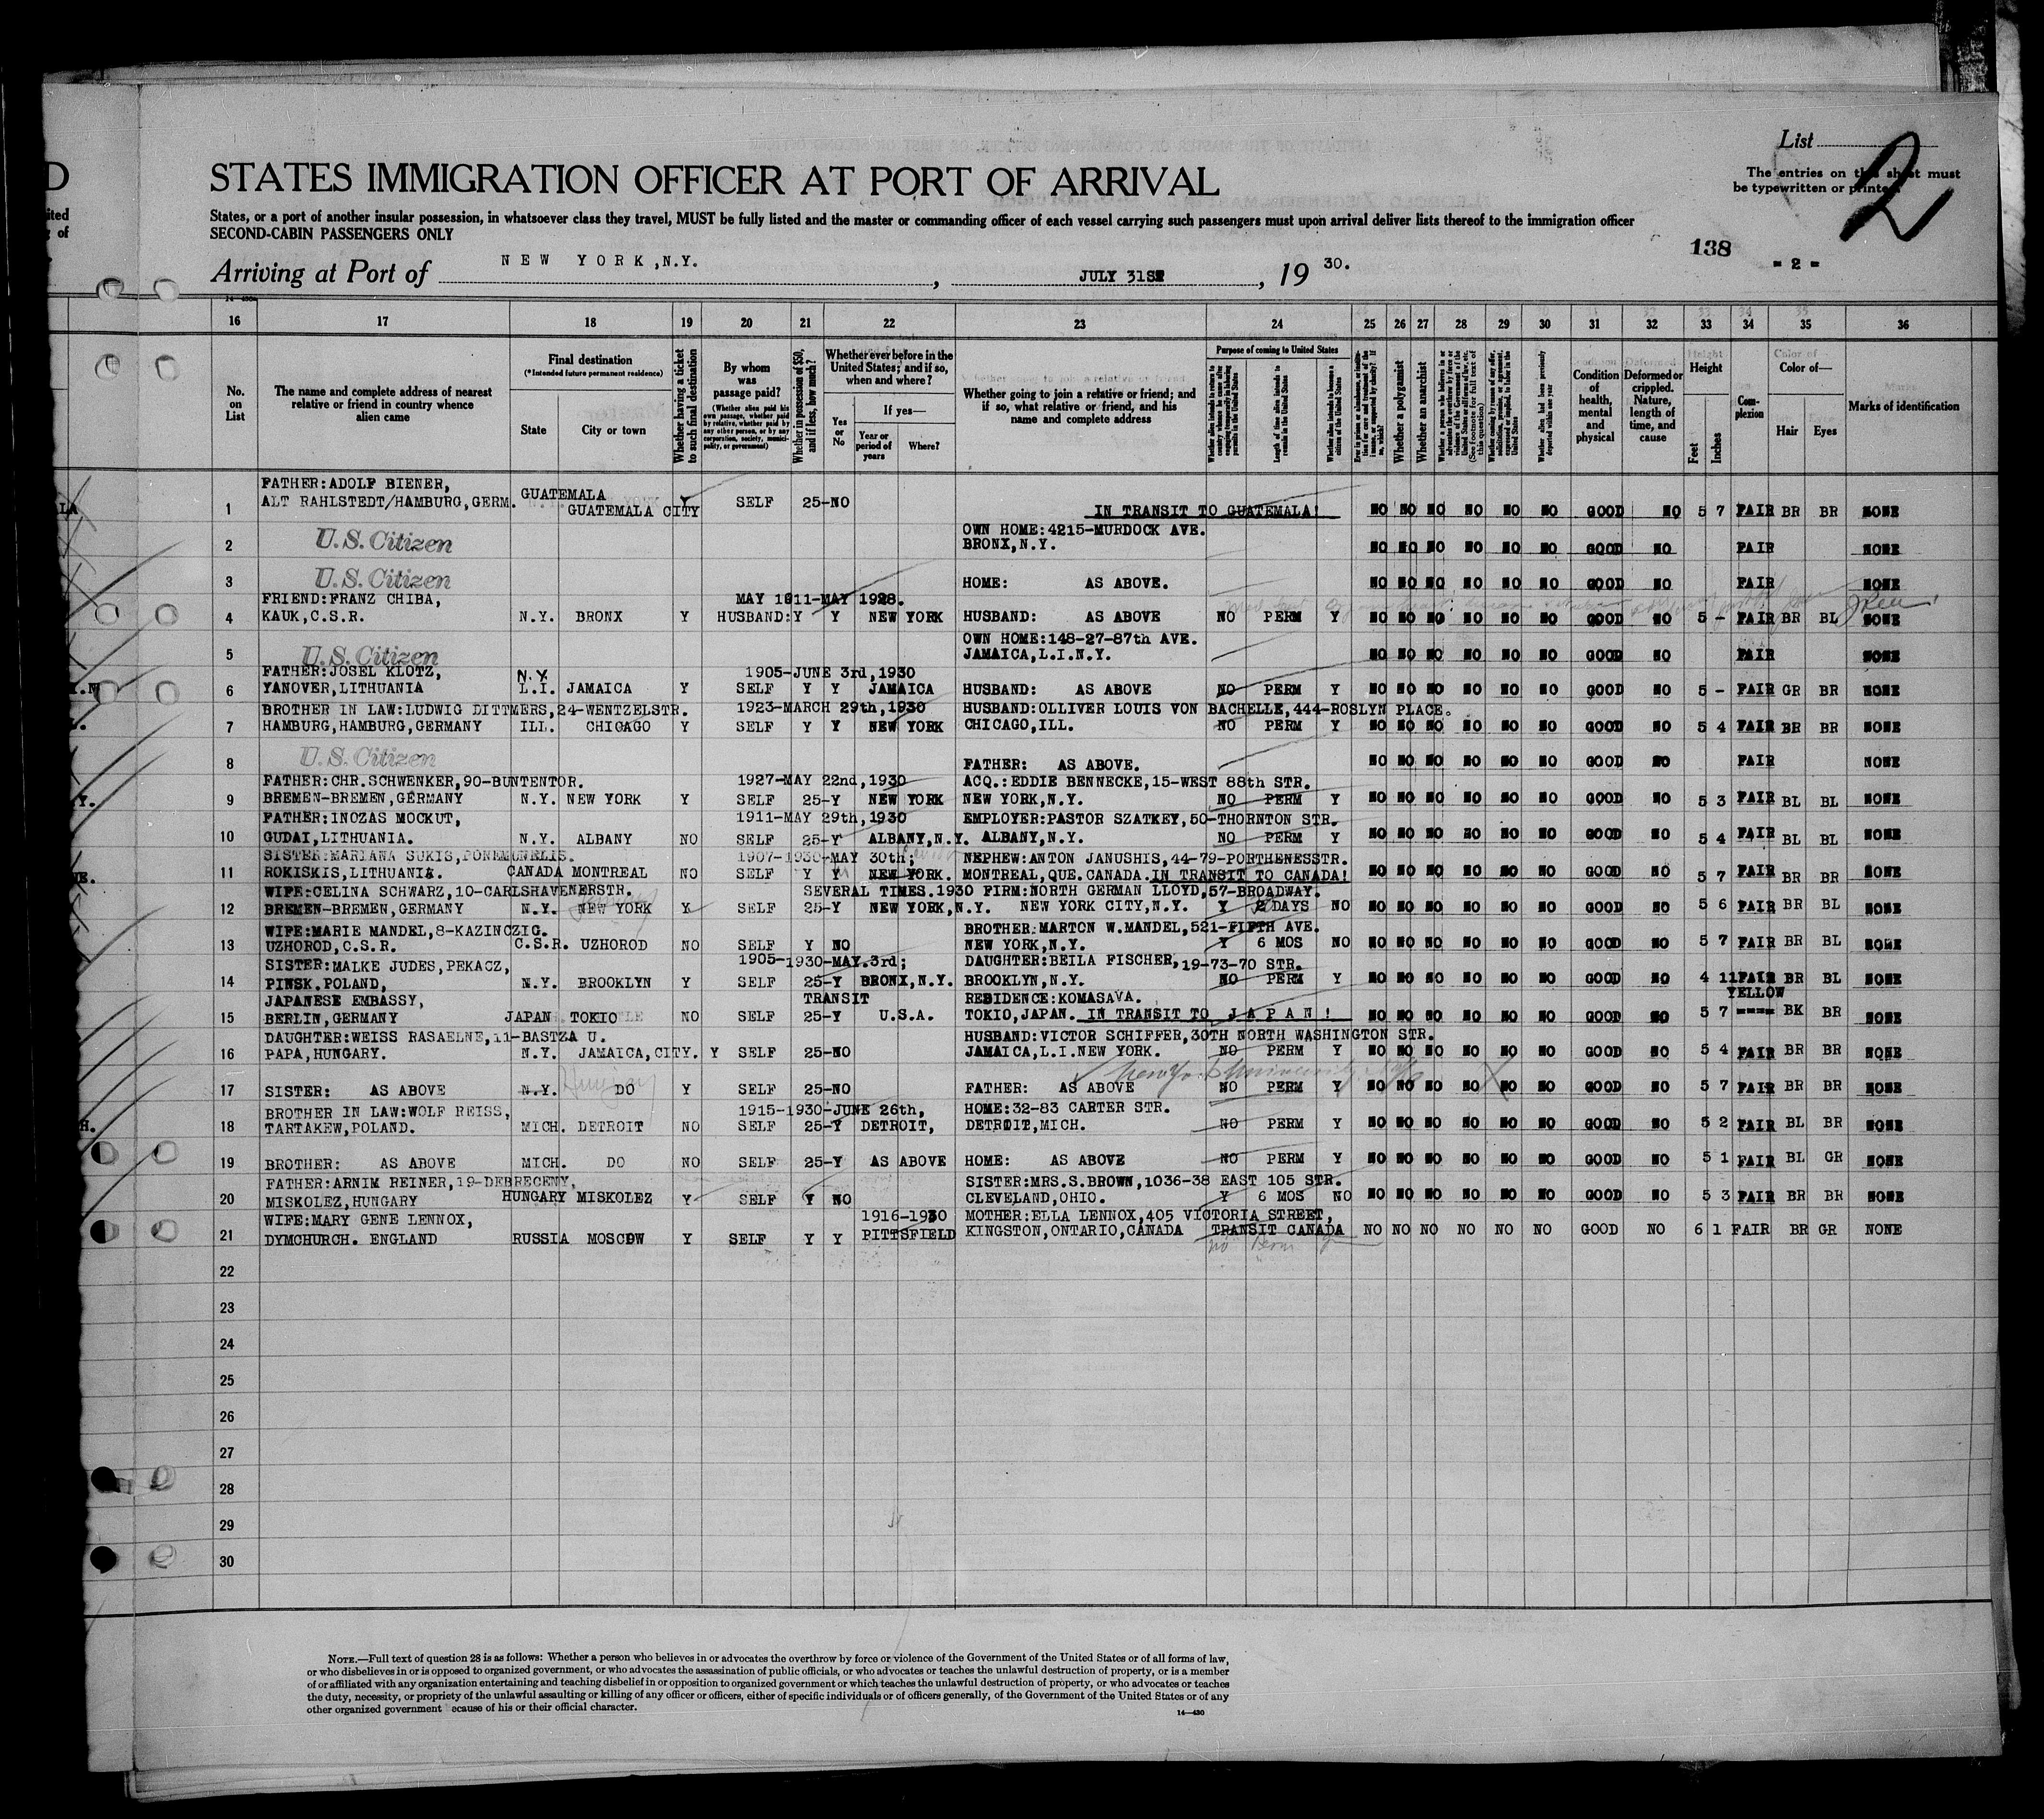 D
ited
g of
List
2
The entries on this sheet must
be typewritten or printed.
STATES IMMIGRATION OFFICER AT PORT OF ARRIVAL
States, or a port of another insular possession, in whatsoever class they travel, MUST be fully listed and the master or commanding officer of each vessel carrying such passengers must upon arrival deliver lists thereof to the immigration officer
SECOND-CABIN PASSENGERS ONLY
138
- 2 -
Arriving at Port of NEW YORK,N.Y. , JULY 31ST , 19 30.
16 17 18 19 20 21 22 23 24 25 26 27 28 29 30 31 32 33 34 35 36
No. on List
The name and complete address of nearest relative or friend in country whence alien came
Final destination
(*Intended future permanent residence)
State City or town
Whether having a ticket to such final destination
By whom was passage paid?
(Whether alien paid his own passage, whether paid by relative, whether paid by any other person, or by any corporation, society, municipality, or government)
Whether in possession of $50, and if less, how much?
Whether ever before in the United States; and if so, when and where?
Yes or No
If yes—
Year or period of years
Where?
Whether going to join a relative or friend; and if so, what relative or friend, and his name and complete address
Purpose of coming to United States
Whether alien intends to return to country whence he came after engaging temporarily in laboring pursuits in the United States
Length of time alien intends to remain in the United States
Whether alien intends to become a citizen of the United States
Whether a polygamist
Whether an anarchist
Condition of health, mental and physical
Deformed or crippled. Nature, length of time, and cause
Height
Feet Inches
Complexion
Color of—
Hair Eyes
Marks of identification
FATHER:ADOLF BIENER,
1 ALT RAHLSTEDT/HAMBURG,GERM. GUATEMALA GUATEMALA CITY Y SELF 25-NO IN TRANSIT TO GUATEMALA! NO NO NO NO NO NO GOOD NO 5 7 FAIR BR BR NONE
OWN HOME:4215-MURDOCK AVE.
2 U.S. Citizen BRONX,N.Y. NO NO NO NO NO NO GOOD NO FAIR NONE
3 U.S. Citizen HOME: AS ABOVE. NO NO NO NO NO NO GOOD NO FAIR NONE
FRIEND:FRANZ CHIBA, MAY 1911-MAY 1928.
4 KAUK,C.S.R. N.Y. BRONX Y HUSBAND:Y Y NEW YORK HUSBAND: AS ABOVE NO PERM Y NO NO NO NO NO NO GOOD NO 5 - FAIR BR BL NONE
OWN HOME:148-27-87th AVE.
5 U.S. Citizen JAMAICA,L.I.N.Y. NO NO NO NO NO NO GOOD NO FAIR NONE
FATHER:JOSEL KLOTZ, N.Y. 1905-JUNE 3rd,1930
6 YANOVER,LITHUANIA L.I. JAMAICA Y SELF Y Y JAMAICA HUSBAND: AS ABOVE NO PERM Y NO NO NO NO NO NO GOOD NO 5 - FAIR GR BR NONE
BROTHER IN LAW:LUDWIG DITTMERS,24-WENTZELSTR. 1923-MARCH 29th,1930 HUSBAND:OLLIVER LOUIS VON BACHELLE,444-ROSLYN PLACE.
7 HAMBURG,HAMBURG,GERMANY ILL. CHICAGO Y SELF Y Y NEW YORK CHICAGO,ILL. NO PERM Y NO NO NO NO NO NO GOOD NO 5 4 FAIR BR BR NONE
8 U.S. Citizen FATHER: AS ABOVE. NO NO NO NO NO NO GOOD NO FAIR NONE
FATHER:CHR.SCHWENKER,90-BUNTENTOR. 1927-MAY 22nd,1930 ACQ.:EDDIE BENNECKE,15-WEST 88th STR.
9 BREMEN-BREMEN,GERMANY N.Y. NEW YORK Y SELF 25-Y NEW YORK NEW YORK,N.Y. NO PERM Y NO NO NO NO NO NO GOOD NO 5 3 FAIR BL BL NONE
FATHER:INOZAS MOCKUT, 1911-MAY 29th,1930 EMPLOYER:PASTOR SZATKEY,50-THORNTON STR.
10 GUDAI,LITHUANIA. N.Y. ALBANY NO SELF 25-Y ALBANY,N.Y. ALBANY,N.Y. NO PERM Y NO NO NO NO NO NO GOOD NO 5 4 FAIR BL BL NONE
SISTER:MARIANA SUKIS,PONEMUNELIS. 1907-1930-MAY 30th; NEPHEW:ANTON JANUSHIS,44-79-PORTHENESSTR.
11 ROKISKIS,LITHUANIA. CANADA MONTREAL NO SELF Y Y NEW YORK. MONTREAL,QUE.CANADA.IN TRANSIT TO CANADA! NO NO NO NO NO NO GOOD NO 5 7 FAIR BR BR NONE
WIFE:CELINA SCHWARZ,10-CARLSHAVENERSTR. SEVERAL TIMES.1930 FIRM:NORTH GERMAN LLOYD,57-BROADWAY.
12 BREMEN-BREMEN,GERMANY N.Y. NEW YORK Y SELF 25-Y NEW YORK,N.Y. NEW YORK CITY,N.Y. Y DAYS NO NO NO NO NO NO NO GOOD NO 5 6 FAIR BR BL NONE
WIFE:MARIE MANDEL,8-KAZINCZIG. BROTHER:MARTON W.MANDEL,521-FIFTH AVE.
13 UZHOROD,C.S.R. C.S.R. UZHOROD NO SELF Y NO NEW YORK,N.Y. Y 6 MOS NO NO NO NO NO NO NO GOOD NO 5 7 FAIR BR BL NONE
SISTER:MALKE JUDES,PEKACZ, 1905-1930-MAY.3rd; DAUGHTER:BEILA FISCHER,19-73-70 STR.
14 PINSK.POLAND, N.Y. BROOKLYN Y SELF 25-Y BRONX,N.Y. BROOKLYN,N.Y. NO PERM Y NO NO NO NO NO NO GOOD NO 4 11 FAIR BR BL NONE
JAPANESE EMBASSY, TRANSIT RESIDENCE:KOMASAVA. YELLOW
15 BERLIN,GERMANY JAPAN TOKIO NO SELF 25-Y U.S.A. TOKIO,JAPAN. IN TRANSIT TO J A P A N ! NO NO NO NO NO NO GOOD NO 5 7 ---- BK BR NONE
DAUGHTER:WEISS RASAELNE,11-BASTZA U. HUSBAND:VICTOR SCHIFFER,30TH NORTH WASHINGTON STR.
16 PAPA,HUNGARY. N.Y. JAMAICA,CITY. Y SELF 25-NO JAMAICA,L.I.NEW YORK. NO PERM Y NO NO NO NO NO NO GOOD NO 5 4 FAIR BR BR NONE
17 SISTER: AS ABOVE N.Y. DO Y SELF 25-NO FATHER: AS ABOVE NO PERM Y NO NO NO NO NO NO GOOD NO 5 7 FAIR BR BR NONE
BROTHER IN LAW:WOLF REISS, 1915-1930-JUNE 26th, HOME:32-83 CARTER STR.
18 TARTAKEW,POLAND. MICH. DETROIT NO SELF 25-Y DETROIT, DETROIT,MICH. NO PERM Y NO NO NO NO NO NO GOOD NO 5 2 FAIR BL BR NONE
19 BROTHER: AS ABOVE MICH. DO NO SELF 25-Y AS ABOVE HOME: AS ABOVE NO PERM Y NO NO NO NO NO NO GOOD NO 5 1 FAIR BL GR NONE
FATHER:ARNIM REINER,19-DEBRECENY, SISTER:MRS.S.BROWN,1036-38 EAST 105 STR.
20 MISKOLEZ,HUNGARY HUNGARY MISKOLEZ Y SELF Y NO CLEVELAND,OHIO. Y 6 MOS NO NO NO NO NO NO NO GOOD NO 5 3 FAIR BR BR NONE
WIFE:MARY GENE LENNOX, 1916-1930 MOTHER:ELLA LENNOX,405 VICTORIA STREET,
21 DYMCHURCH. ENGLAND RUSSIA MOSCOW Y SELF Y Y PITTSFIELD KINGSTON,ONTARIO,CANADA TRANSIT CANADA NO NO NO NO NO NO GOOD NO 6 1 FAIR BR GR NONE
no Perm
22
23
24
25
26
27
28
29
30
NOTE.—Full text of question 28 is as follows: Whether a person who believes in or advocates the overthrow by force or violence of the Government of the United States or of all forms of law,
or who disbelieves in or is opposed to organized government, or who advocates the assassination of public officials, or who advocates or teaches the unlawful destruction of property, or is a member
of or affiliated with any organization entertaining and teaching disbelief in or opposition to organized government or which teaches the unlawful destruction of property, or who advocates or teaches
the duty, necessity, or propriety of the unlawful assaulting or killing of any officer or officers, either of specific individuals or of officers generally, of the Government of the United States or of any
other organized government ecause of his or their official character.
14—430